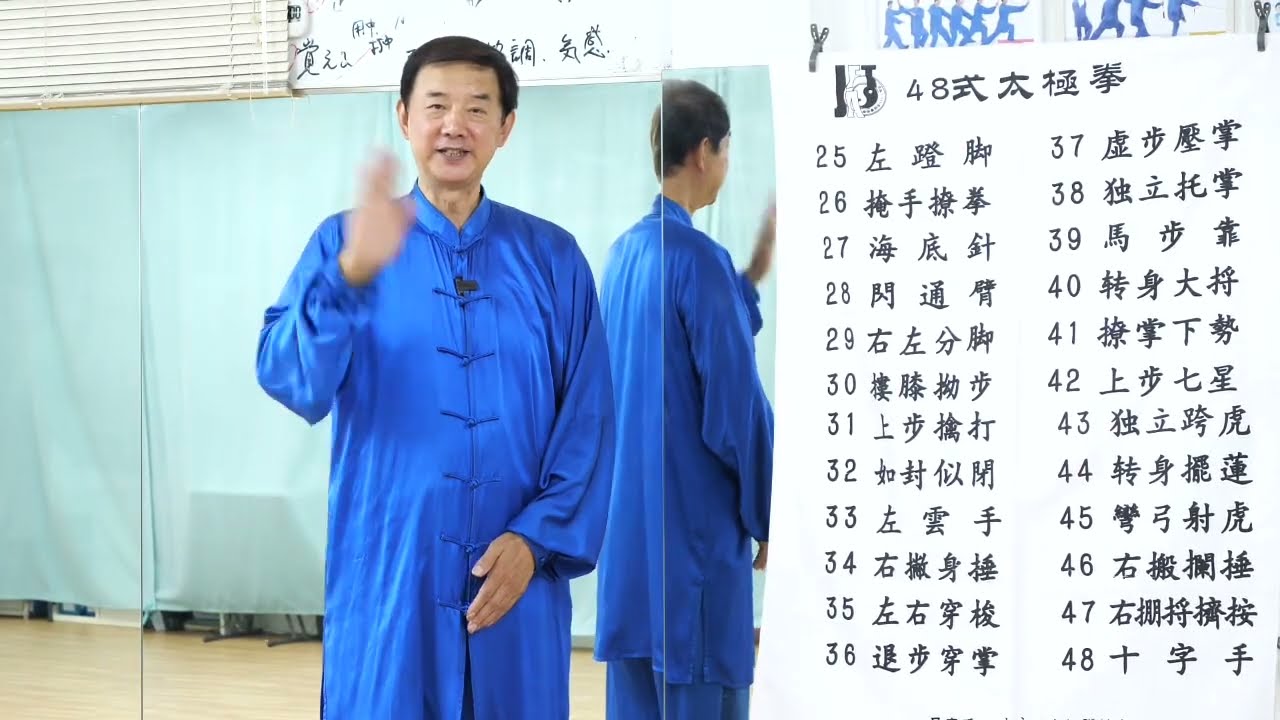 覚える
調、気感
48式太極拳
25 左蹬脚
26 掩手撩拳
27 海底針
28 閃通臂
29 右左分脚
30 摟膝拗步
31 上步擒打
32 如封似閉
33 左雲手
34 右撇身捶
35 左右穿梭
36 退步穿掌
37 虚步壓掌
38 独立托掌
39 馬步靠
40 转身大捋
41 撩掌下勢
42 上步七星
43 独立跨虎
44 转身擺蓮
45 彎弓射虎
46 右搬攔捶
47 右掤捋擠按
48 十字手